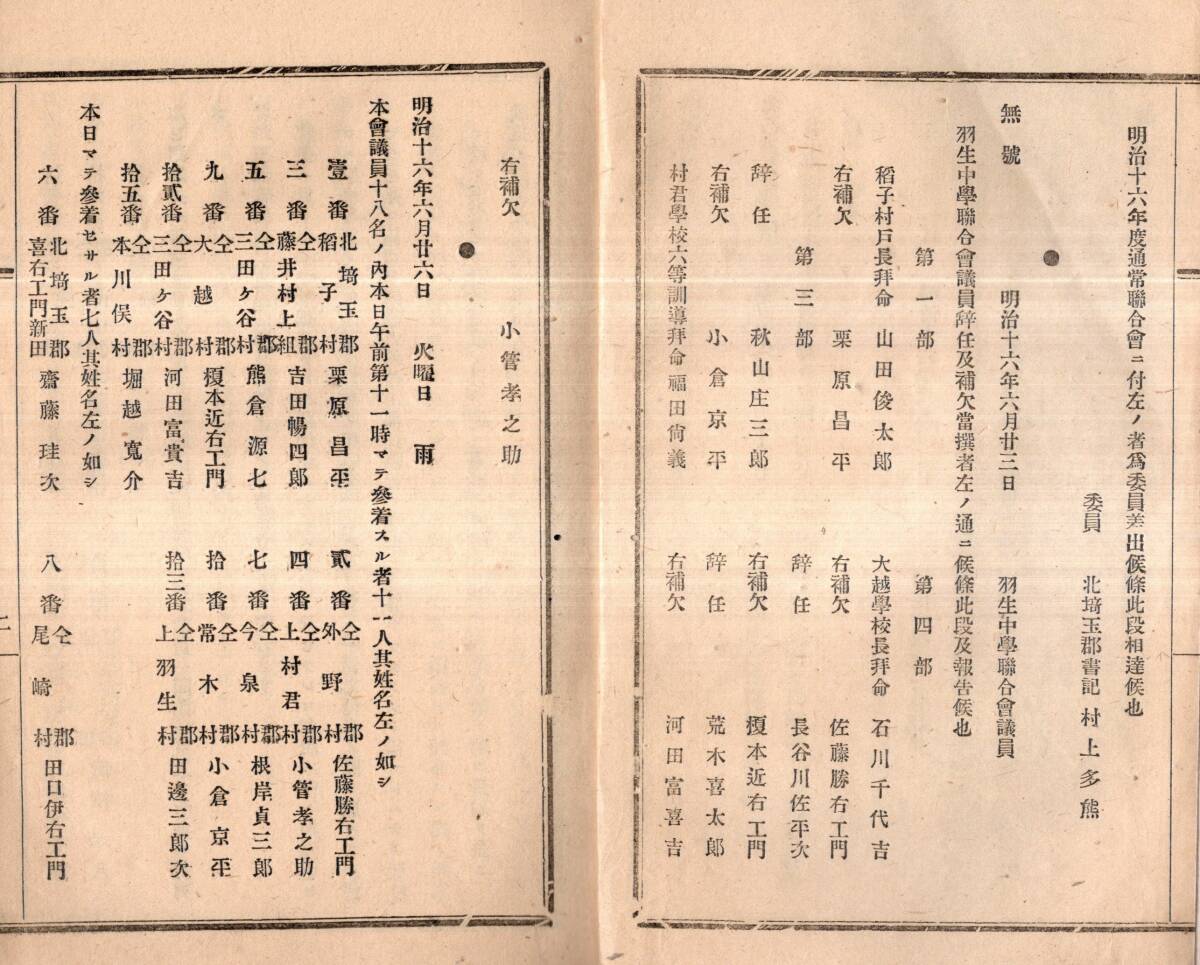 明治十六年度通常聯合會ニ付左ノ者爲委員差出候條此段相達候也
委員　北埼玉郡書記　村上多熊
無號
明治十六年六月廿三日　羽生中學聯合會議員
羽生中學聯合會議員辞任及補欠當撰者左ノ通ニ候條此段及報告候也
第一部　第四部
稻子村戸長拜命　山田俊太郎　大越學校長拜命　石川千代吉
右補欠　栗原昌平　右補欠　佐藤勝右エ門
第三部　辞任　長谷川佐平次
辞任　秋山庄三郎　右補欠　榎本近右エ門
右補欠　小倉京平　辞任　荒木喜太郎
村君學校六等訓導拜命　福田尙義　右補欠　河田富喜吉
右補欠　小菅孝之助
明治十六年六月廿六日　火曜日　雨
本會議員十八名ノ內本日午前第十一時マテ參着スル者十一人其姓名左ノ如シ
壹番　北埼玉郡稻子村　栗原昌平　貳番　仝郡外野村　佐藤勝右エ門
三番　仝郡藤井村上組　吉田暢四郎　四番　仝郡上村君村　小菅孝之助
五番　仝郡三田ヶ谷村　熊倉源七　七番　仝郡今泉村　根岸貞三郎
九番　仝郡大越村　榎本近右エ門　拾番　仝郡常木村　小倉京平
拾貳番　仝郡三田ヶ谷村　河田富貴吉　拾三番　仝郡上羽生村　田邊三郎次
拾五番　仝郡本川俣村　堀越寬介
本日マテ參着セサル者七人其姓名左ノ如シ
六番　北埼玉郡喜右エ門新田　齋藤珪次　八番　仝郡尾崎村　田口伊右エ門
二